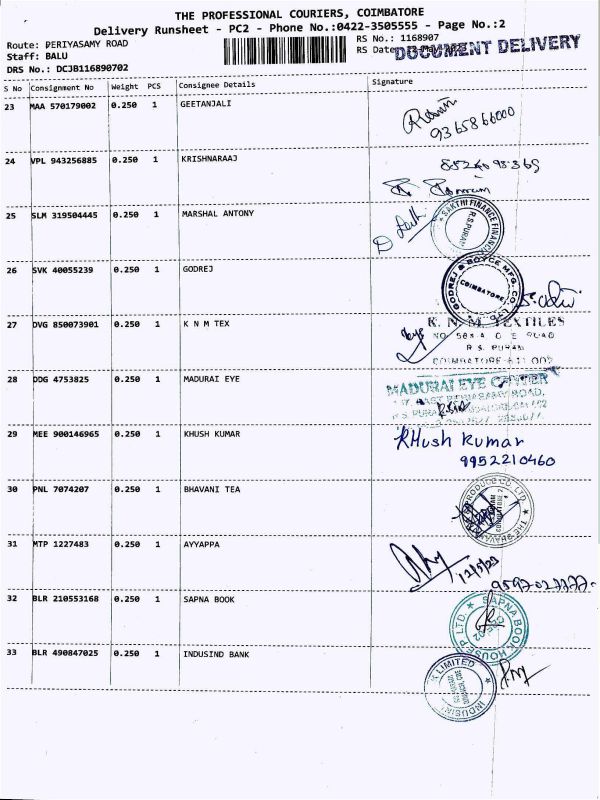 THE PROFESSIONAL COURIERS, COIMBATORE
Delivery Runsheet - PC2 - Phone No.:0422-3505555 - Page No.:2
Route: PERIYASAMY ROAD
RS No.: 1168907
Staff: BALU
RS Date:
DOCUMENT DELIVERY
DRS No.: DCJB116890702
S No Consignment No Weight PCS Consignee Details Signature
23 MAA 570179002 0.250 1 GEETANJALI
9365866000
24 VPL 943256885 0.250 1 KRISHNARAAJ
25 SLM 319504445 0.250 1 MARSHAL ANTONY
SAKTHI FINANCE
R.S.PURAM
26 SVK 40055239 0.250 1 GODREJ
GODREJ & BOYCE MFG. CO. LTD.
COIMBATORE
27 DVG 850073901 0.250 1 K N M TEX
K. N. M. TEXTILES
R S PURAM
COIMBATORE-641 002
28 DDG 4753825 0.250 1 MADURAI EYE
MADURAI EYE CENTER
29 MEE 900146965 0.250 1 KHUSH KUMAR
KHush kumar
9952210460
30 PNL 7074207 0.250 1 BHAVANI TEA
31 MTP 1227483 0.250 1 AYYAPPA
12/5/23
32 BLR 210553168 0.250 1 SAPNA BOOK
SAPNA BOOK HOUSE P. LTD.
33 BLR 490847025 0.250 1 INDUSIND BANK